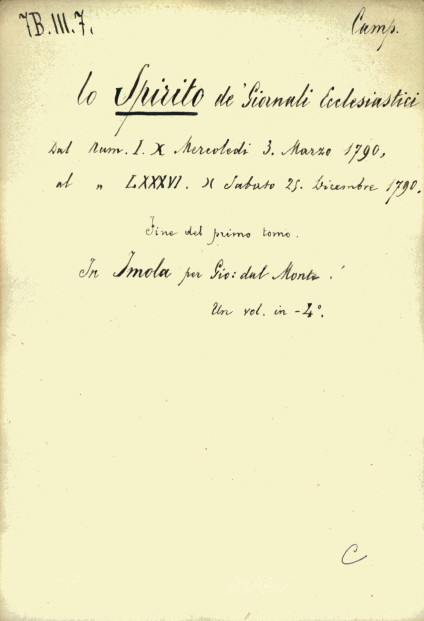 7B.III.7.
Camp.
Lo Spirito de' Giornali Ecclesiastici
Dal Num. I. X Mercoledi 3. Marzo 1790,
al " LXXXVI. X Sabato 25. Dicembre 1790.
Fine del primo tomo.
In Imola per Gio: dal Monte.
Un vol. in -4º.
C